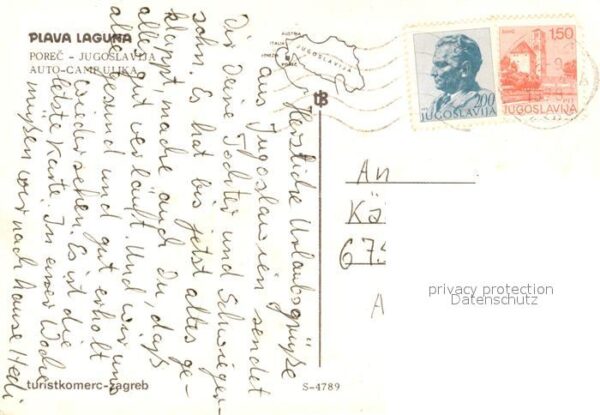 PLAVA LAGUNA
POREČ - JUGOSLAVIJA
AUTO-CAMP ULIKA
AUSTRIA
ITALIA
JUGOSLAVIJA
POREČ
2.00
JUGOSLAVIJA
1.50
JUGOSLAVIJA
Herzliche Urlaubsgrüße
aus Jugoslawien sendet
Dir Deine Tochter und Schwieger-
sohn. Es hat bis jetzt alles ge-
klappt, mache auch Du, daß
alles gut verläuft. Und wir uns
alle gesund und gut erholt
wiedersehen. Es ist die
letzte Karte. In einer Woche
müßen wir nach hause Hedi
An
Kä
67
A
privacy protection
Datenschutz
turistkomerc-zagreb
S-4789